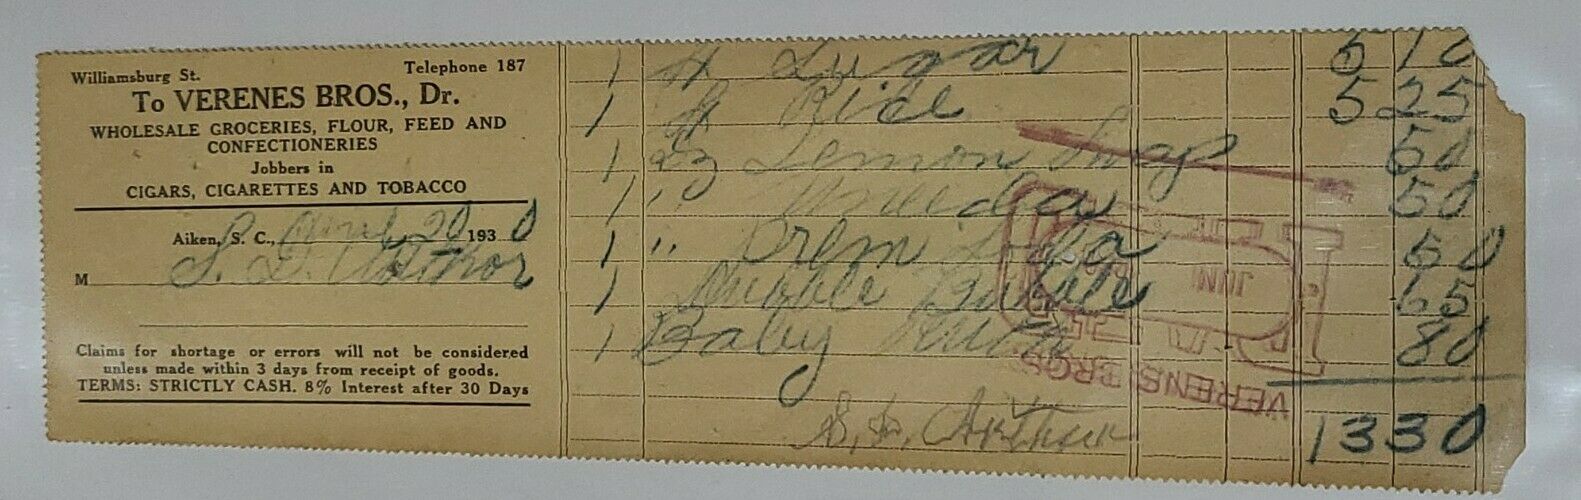 Williamsburg St. Telephone 187
To VERENES BROS., Dr.
WHOLESALE GROCERIES, FLOUR, FEED AND
CONFECTIONERIES
Jobbers in
CIGARS, CIGARETTES AND TOBACCO
Aiken, S. C., 20 1930
M S. D.
Claims for shortage or errors will not be considered
unless made within 3 days from receipt of goods.
TERMS: STRICTLY CASH. 8% Interest after 30 Days
1 Sugar 5 10
1 Rice 5 25
1 Lemon Snap 50
1 " Uneeda 50
1 " Soda 50
1 65
1 Baby Ruth 80
13 30
PAID
JUN
VERENES BROS.